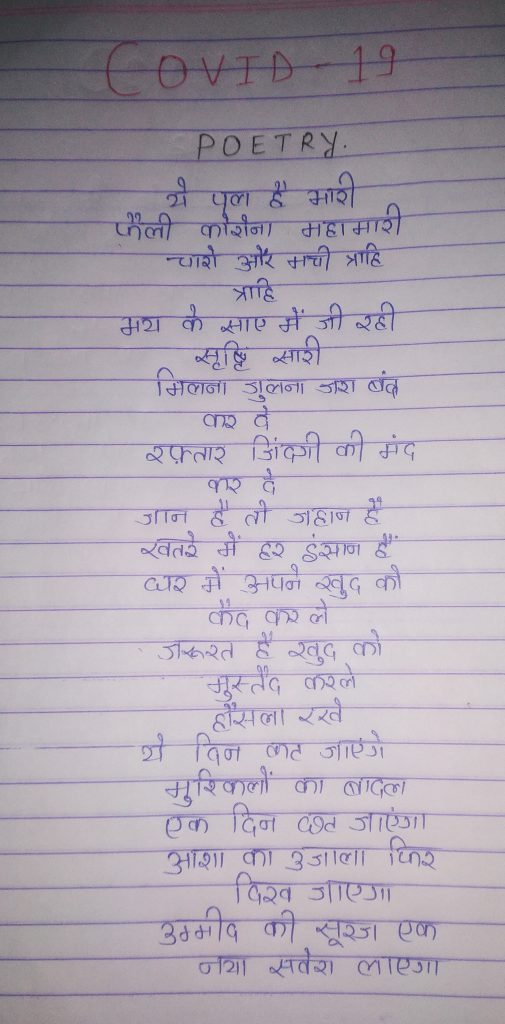 COVID-19
POETRY.
ये पल है भारी
फैली कोरोना महामारी
चारो और मची त्राहि
त्राहि
भय के साए में जी रही
सृष्टि सारी
मिलना जुलना जरा बंद
कर दे
रफ़्तार जिंदगी की मंद
कर दे
जान है तो जहान है
खतरे में हर इंसान है
घर में अपने खुद को
कैद कर ले
जरूरत है खुद को
मुस्तैद करले
हौंसला रखे
ये दिन कट जाएंगे
मुश्किलों का बादल
एक दिन छट जाएंगा
आशा का उजाला फिर
दिख जाएगा
उम्मीद की सूरज एक
नया सवेरा लाएगा